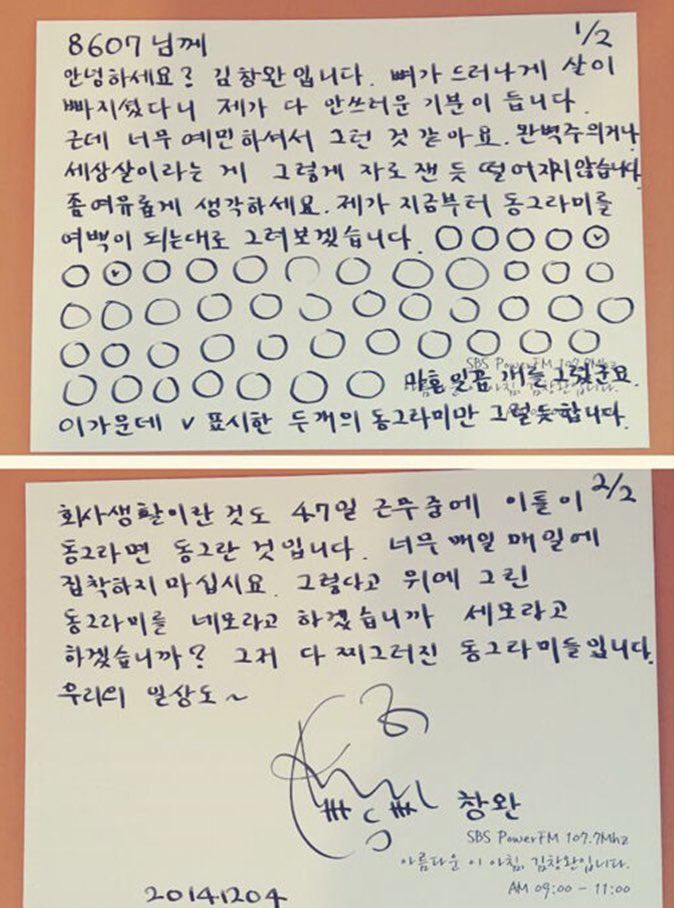 1/2
8607님께
안녕하세요? 김창완입니다. 뼈가 드러나게 살이
빠지셨다니 제가 다 안쓰러운 기분이 듭니다.
근데 너무 예민하셔서 그런 것 같아요. 완벽주의거나
세상살이라는 게 그렇게 자로 잰 듯 떨어지지않습니다.
좀 여유롭게 생각하세요. 제가 지금부터 동그라미를
여백이 되는대로 그려보겠습니다.
SBS PowerFM 107.7Mhz
마흔일곱 개를 그렸군요.
이가운데 v 표시한 두개의 동그라미만 그럴듯합니다.
2/2
회사생활이란 것도 47일 근무중에 이틀이
동그라면 동그란 것입니다. 너무 매일 매일에
집착하지 마십시요. 그렇다고 위에 그린
동그라미를 네모라고 하겠습니까 세모라고
하겠습니까? 그저 다 찌그러진 동그라미들입니다.
우리의 일상도~
창완
SBS PowerFM 107.7Mhz
아름다운 이 아침, 김창완입니다.
AM 09:00 - 11:00
20141204